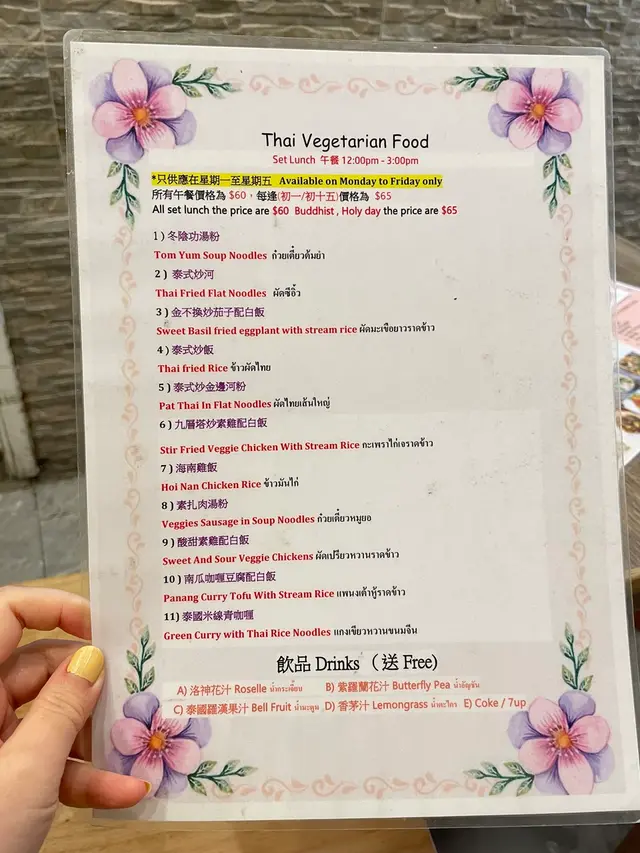 Thai Vegetarian Food
Set Lunch 午餐 12:00pm - 3:00pm
*只供應在星期一至星期五 Available on Monday to Friday only
所有午餐價格為 $60，每逢(初一/初十五)價格為 $65
All set lunch the price are $60 Buddhist , Holy day the price are $65
1 ) 冬陰功湯粉
Tom Yum Soup Noodles ก๋วยเตี๋ยวต้มยำ
2 ) 泰式炒河
Thai Fried Flat Noodles ผัดซีอิ๊ว
3 ) 金不換炒茄子配白飯
Sweet Basil fried eggplant with stream rice ผัดมะเขือยาวราดข้าว
4 ) 泰式炒飯
Thai fried Rice ข้าวผัดไทย
5 ) 泰式炒金邊河粉
Pat Thai In Flat Noodles ผัดไทยเส้นใหญ่
6 ) 九層塔炒素雞配白飯
Stir Fried Veggie Chicken With Stream Rice กะเพราไก่เจราดข้าว
7 ) 海南雞飯
Hoi Nan Chicken Rice ข้าวมันไก่
8 ) 素扎肉湯粉
Veggies Sausage in Soup Noodles ก๋วยเตี๋ยวหมูยอ
9 ) 酸甜素雞配白飯
Sweet And Sour Veggie Chickens ผัดเปรี้ยวหวานราดข้าว
10 ) 南瓜咖喱豆腐配白飯
Panang Curry Tofu With Stream Rice แพนงเต้าหู้ราดข้าว
11) 泰國米線青咖喱
Green Curry with Thai Rice Noodles แกงเขียวหวานขนมจีน
飲品 Drinks （送 Free)
A) 洛神花汁 Roselle น้ำกระเจี๊ยบ B) 紫羅蘭花汁 Butterfly Pea น้ำอัญชัน
C) 泰國羅漢果汁 Bell Fruit น้ำมะตูม D) 香茅汁 Lemongrass น้ำตะไคร E) Coke / 7up